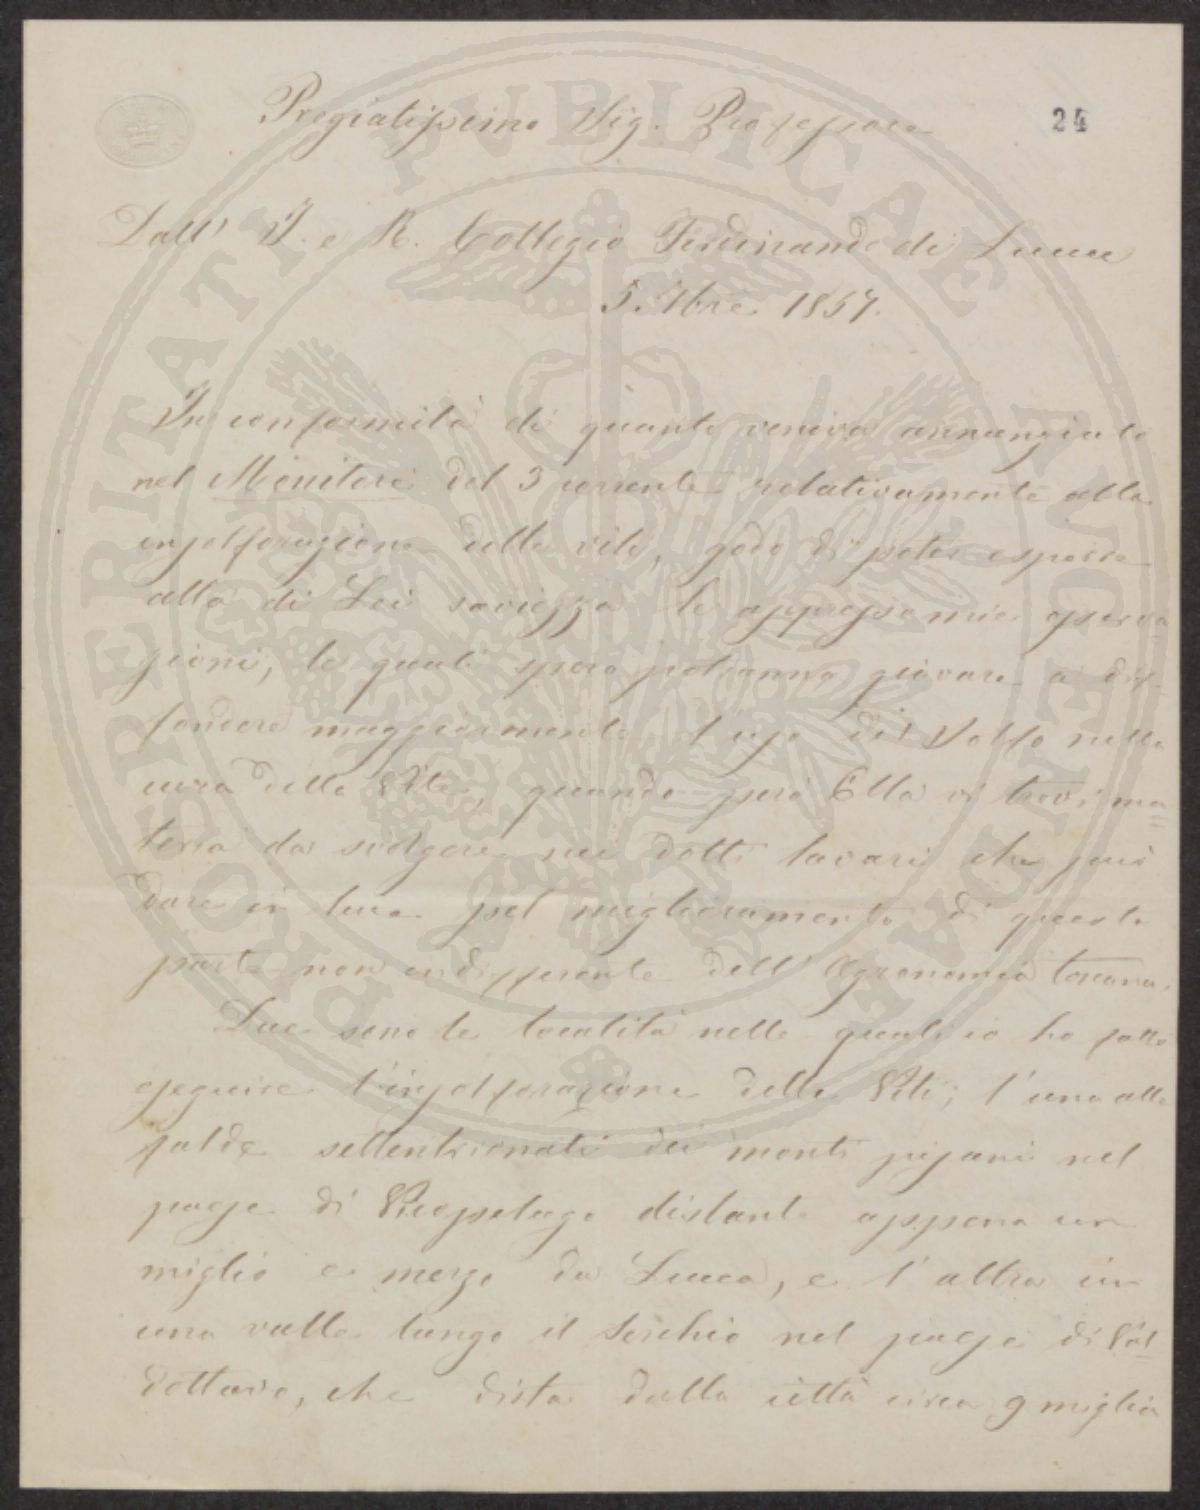 24
Pregiatissimo Sig. Professore
Dall' I. e R. Collegio Ferdinando di Lucca
5. Mbre 1857.
In conformità di quanto veniva annunziato
nel Monitore del 3 corrente relativamente alla
insolforazione delle viti, godo di poter esporre
alla di Lei saviezza le appresso mie osserva=
zioni, le quali spero potranno giovare a dif=
fondere maggiormente l'uso del Solfo nella
cura delle Viti, quando però Ella vi trovi ma=
teria da svolgere nei dotti lavori che può
dare in luce pel miglioramento di questa
parte non indifferente dell'Agronomia toscana.
Due sono le località nelle quali io ho fatto
eseguire l'insolforazione delle Viti; l'una alle
falde settentrionali dei monti pisani nel
paese di Vicopelago distante appena un
miglio e mezzo da Lucca, e l'altra in
una valle lungo il Serchio nel paese di Val=
dottavo, che dista dalla città circa 9 miglia
PROSPERITATI PVBLICAE AVGENDAE